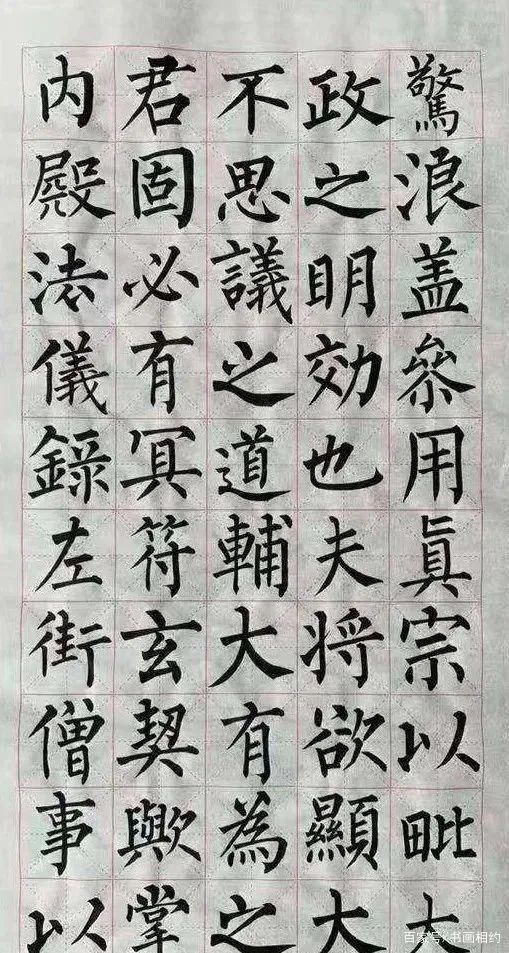 驚浪盖叅用真宗以毗大
政之明効也夫将欲顯大
不思議之道輔大有為之
君固必有冥符玄契歟掌
内殿法儀録左街僧事以
百家号/书画相约